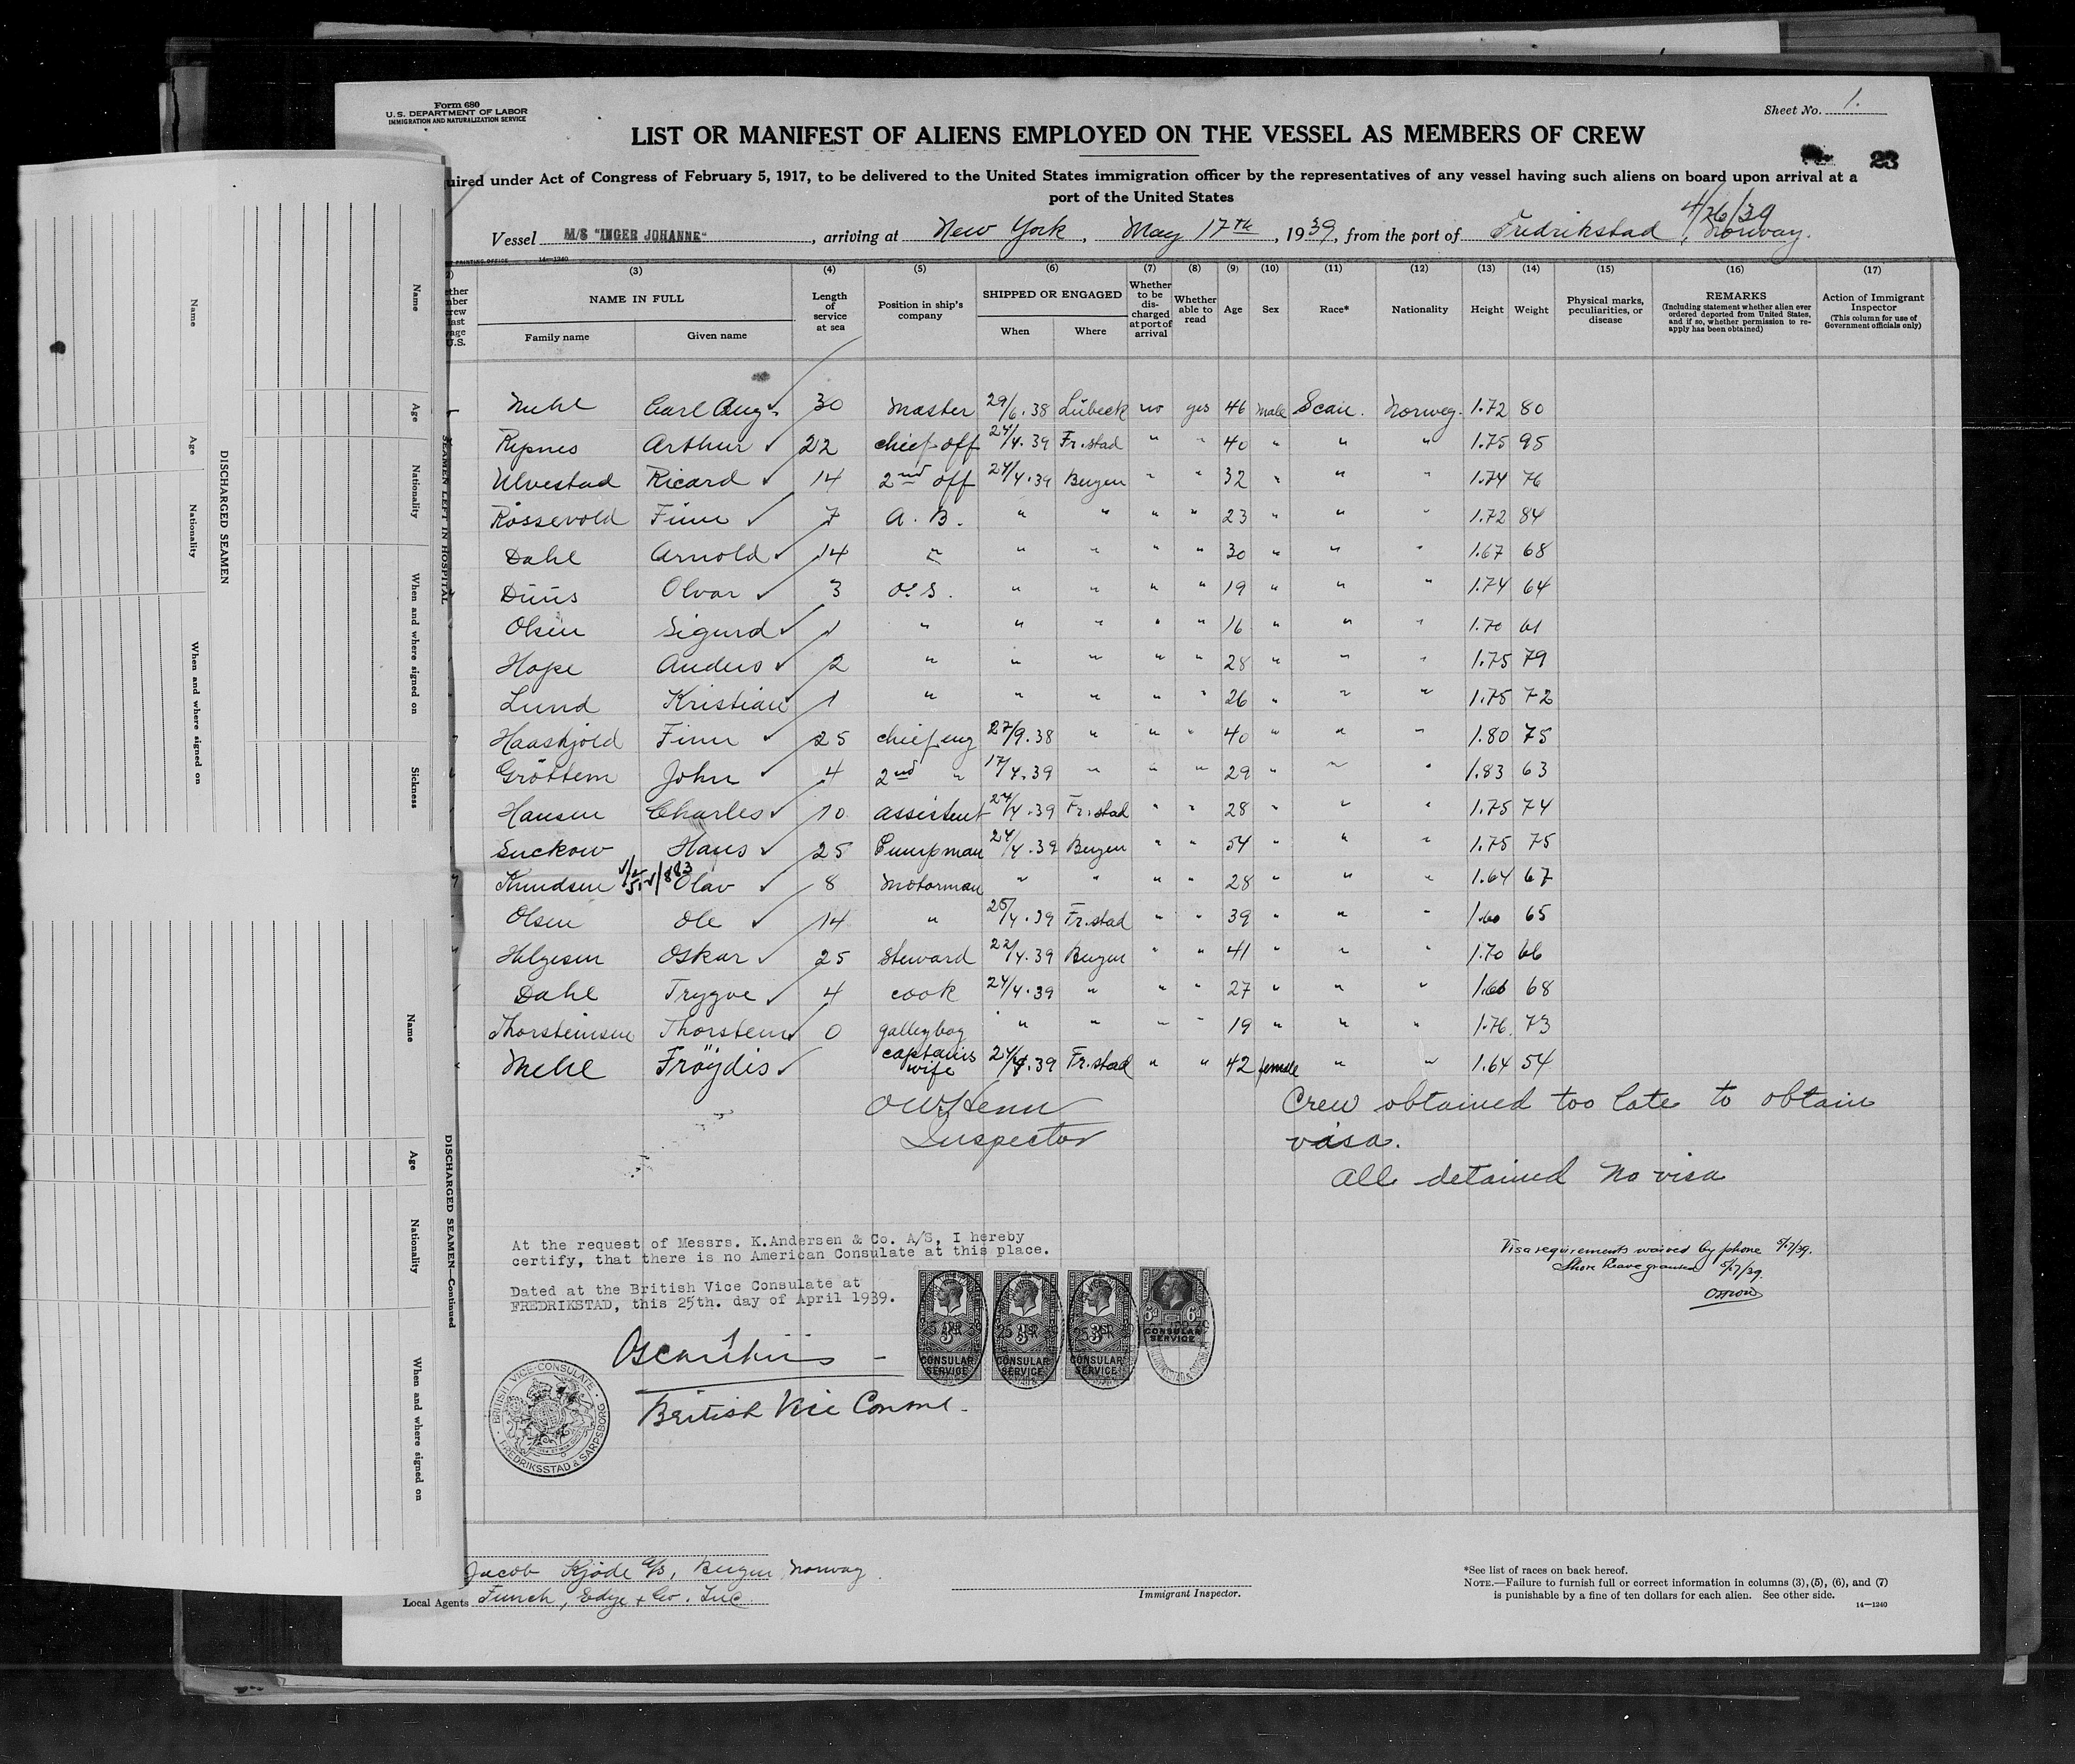 Form 680
U. S. DEPARTMENT OF LABOR
IMMIGRATION AND NATURALIZATION SERVICE
Sheet No. 1.
LIST OR MANIFEST OF ALIENS EMPLOYED ON THE VESSEL AS MEMBERS OF CREW
23
uired under Act of Congress of February 5, 1917, to be delivered to the United States immigration officer by the representatives of any vessel having such aliens on board upon arrival at a
port of the United States
4/26/39
Vessel M/S "INGER JOHANNE", arriving at New York, May 17th, 1939, from the port of Fredrikstad, Norway.
14—1240
(3) (4) (5) (6) (7) (8) (9) (10) (11) (12) (13) (14) (15) (16) (17)
NAME IN FULL
Family name Given name
Length of service at sea
Position in ship's company
SHIPPED OR ENGAGED
When Where
Whether to be discharged at port of arrival
Whether able to read
Age Sex Race* Nationality Height Weight
Physical marks, peculiarities, or disease
REMARKS
(Including statement whether alien ever ordered deported from United States, and if so, whether permission to reapply has been obtained)
Action of Immigrant Inspector
(This column for use of Government officials only)
Mehl Carl Aug. 30 Master 29/6.38 Lübeck no yes 46 male Scan. Norweg. 1.72 80
Ripnes Arthur 22 chief off 24/4.39 Fr.stad " " 40 " " " 1.75 95
Ulvestad Ricard 14 2nd off 24/4.39 Bergen " " 32 " " " 1.74 76
Rössevold Finn 7 A. B. " " " " 23 " " " 1.72 84
Dahl Arnold 14 " " " " " 30 " " " 1.67 68
Düüs Olvar 3 O. S. " " " " 19 " " " 1.74 64
Olsen Sigurd 1 " " " " " 16 " " " 1.70 61
Hope Anders 2 " " " " " 28 " " " 1.75 79
Lund Kristian 1 " " " " " 26 " " " 1.75 72
Haaskjold Finn 25 chief eng 27/9.38 " " " 40 " " " 1.80 75
Gröttem John 4 2nd " 17/4.39 " " " 29 " " " 1.83 63
Hansen Charles 10 assistent 24/4.39 Fr.stad " " 28 " " " 1.75 74
Suckow Hans 25 Pumpman 24/4.39 Bergen " " 54 " " " 1.75 75
Knudsen Olav 8 Motorman " " " " 28 " " " 1.64 67
Olsen Ole 14 " 25/4.39 Fr.stad " " 39 " " " 1.60 65
Helgesen Oskar 25 Steward 22/4.39 Bergen " " 41 " " " 1.70 66
Dahl Trygve 4 cook 24/4.39 " " " 27 " " " 1.66 68
Thorsteinsen Thorstein 0 galleyboy " " " " 19 " " " 1.76 73
Mehl Fröydis captains wife 24/4.39 Fr.stad " " 42 female " " 1.64 54
Inspector
Crew obtained too late to obtain
visa.
All detained No visa
At the request of Messrs. K.Andersen & Co. A/S, I hereby
certify, that there is no American Consulate at this place.
Dated at the British Vice Consulate at
FREDRIKSTAD, this 25th. day of April 1939.
Visa requirements waived by phone 5/17/39.
Shore leave granted 5/17/39.
CONSULAR SERVICE
CONSULAR SERVICE
CONSULAR SERVICE
6d 6d
CONSULAR SERVICE
British Vice Consul
BRITISH VICE-CONSULATE
FREDRIKSSTAD & SARPSBORG
Jacob Kjöde A/S, Bergen, Norway.
Local Agents Funch, Edye & Co. Inc.
Immigrant Inspector.
*See list of races on back hereof.
NOTE.—Failure to furnish full or correct information in columns (3), (5), (6), and (7)
is punishable by a fine of ten dollars for each alien. See other side.
14—1240
SEAMEN LEFT IN HOSPITAL
Name Age Nationality When and where signed on Sickness
DISCHARGED SEAMEN
Name Age Nationality When and where signed on
DISCHARGED SEAMEN—Continued
Name Age Nationality When and where signed on